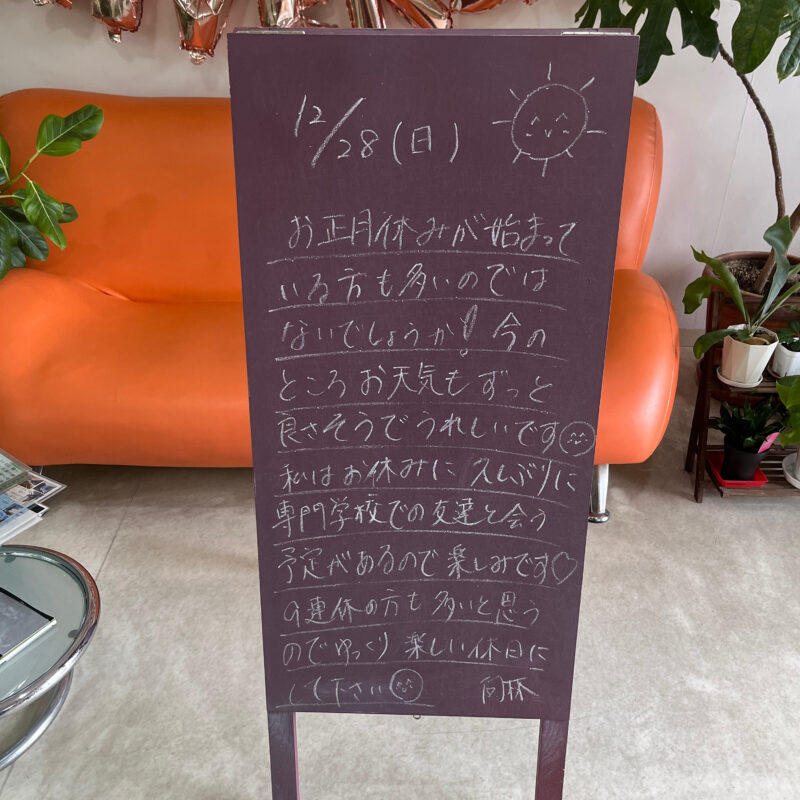 12/28(日)
お正月休みが始まって
いる方も多いのでは
ないでしょうか！今の
ところお天気もずっと
良さそうでうれしいです
私はお休みに久しぶりに
専門学校での友達と会う
予定があるので楽しみです♡
9連休の方も多いと思う
のでゆっくり楽しい休日に
して下さい